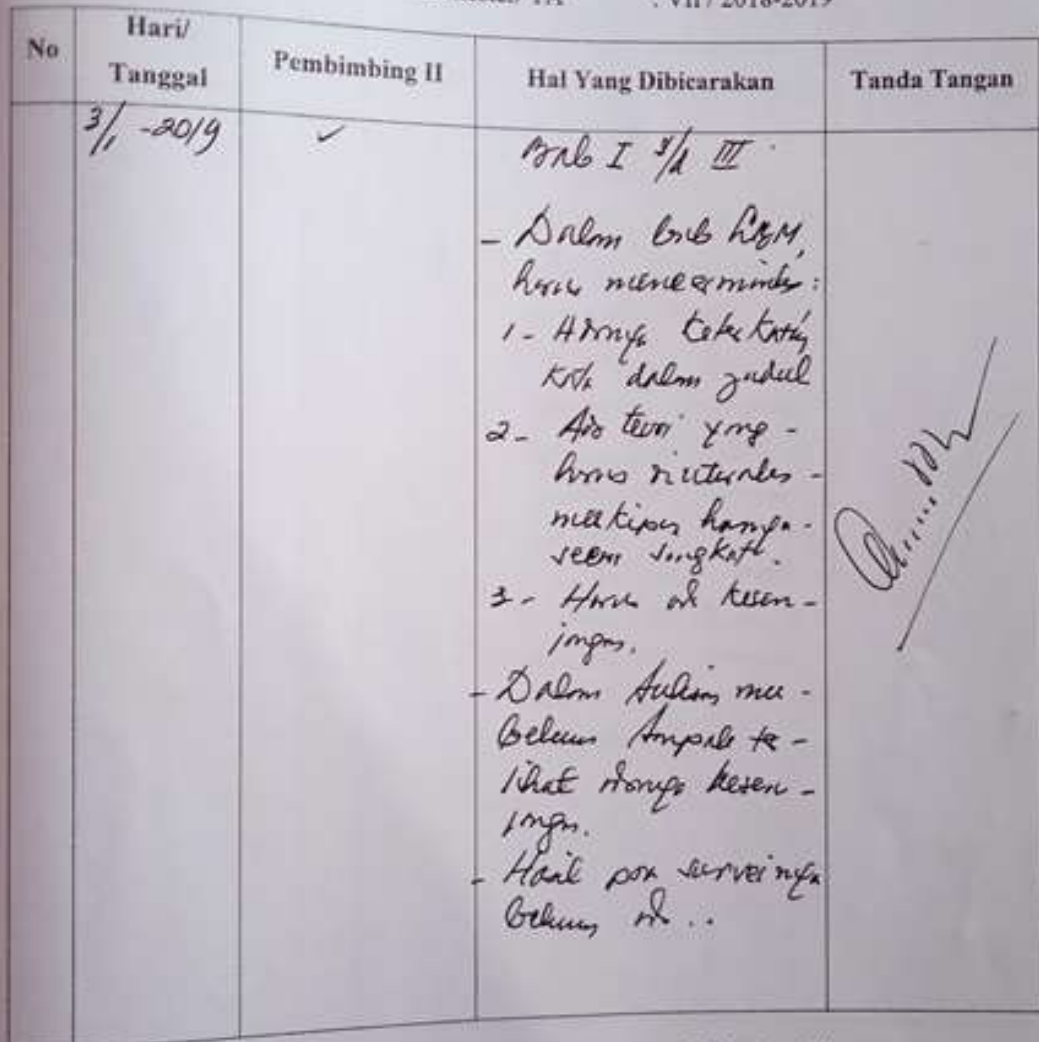 : VII / 2018-2019
No
Hari/
Tanggal
Pembimbing II
Hal Yang Dibicarakan
Tanda Tangan
3/1 -2019
✓
Bab I s/d III
- Dalam bab LBM,
harus mencerminkan:
1 - Adanya keterkaitan
kata dalam judul
2 - Ada teori yang -
harus
meskipun hanya -
secara singkat.
3 - Harus ada kesen -
jangan.
- Dalam tulisan
belum tampak te -
lihat adanya kesen -
jangan.
- Hasil pra surveinya
belum ada ..